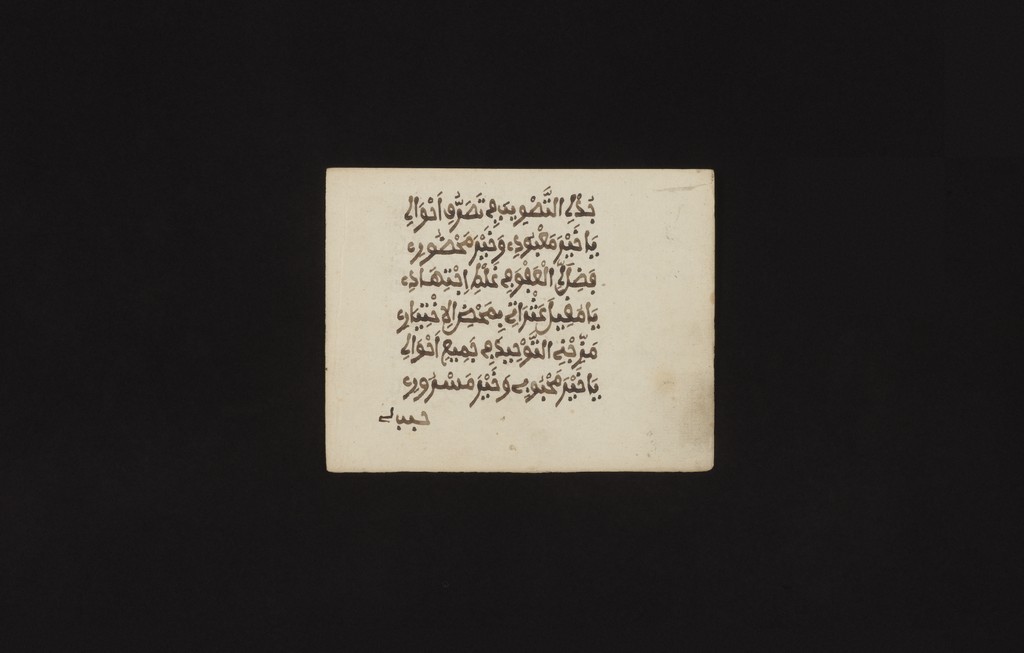 جُدْلِي التَّصْوِيبَ فِي تَصَرُّفِ أَحْوَالِي
يَا خَيْرَ مَعْبُودٍ وَخَيْرَ مَحْضُورٍ
فَضْلُ الْعَفْوِ فِي غَلَطِ اجْتِهَادِي
يَا مُقِيلَ عَثَرَاتِي بِمَحْضِ الِاخْتِيَارِ
مَزِّجْنِي التَّوْحِيدَ فِي جَمِيعِ أَحْوَالِي
يَا خَيْرَ مَحْبُوبٍ وَخَيْرَ مَسْرُورٍ